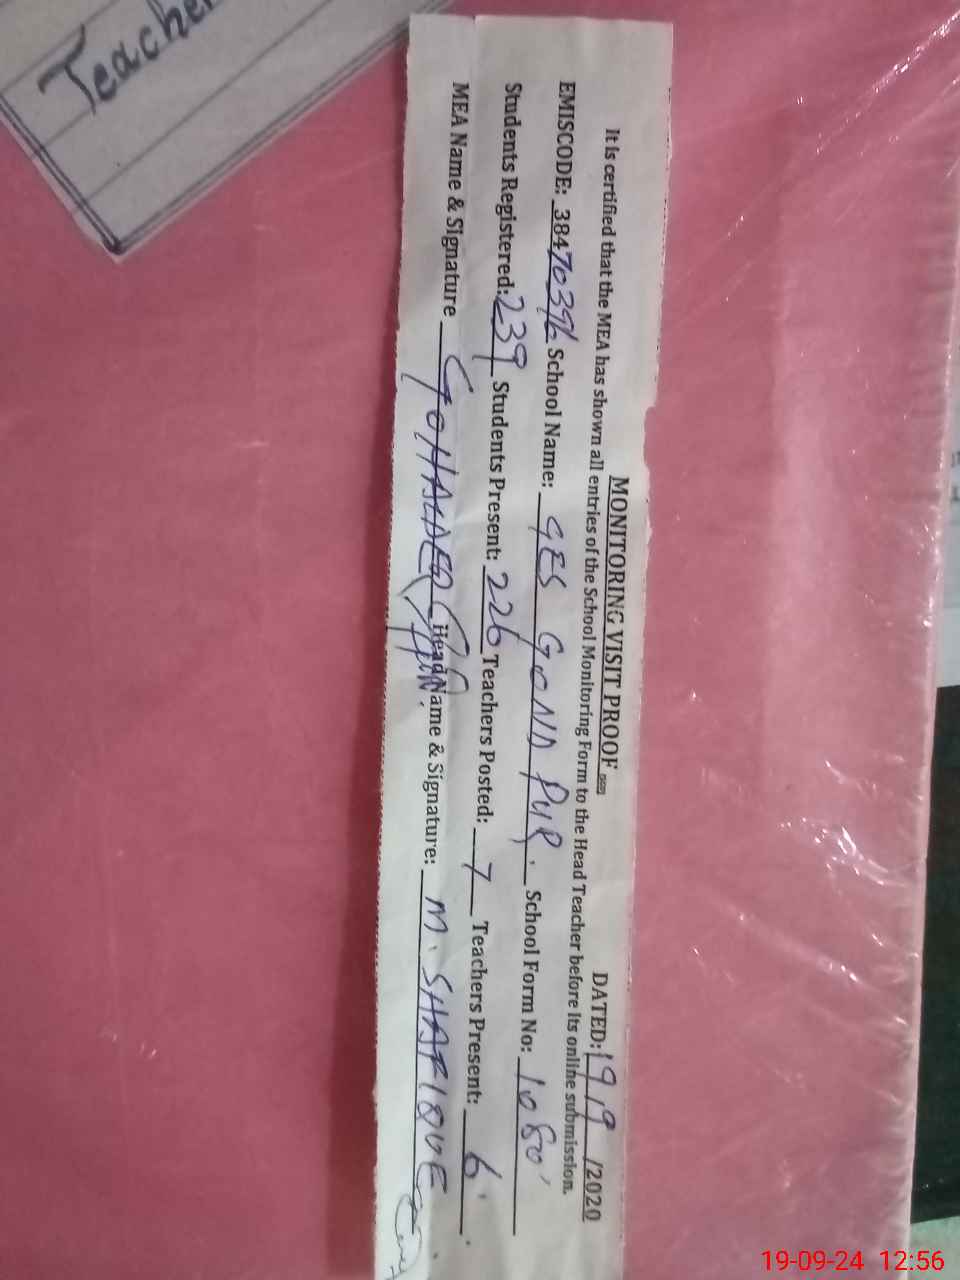 Teache
MONITORING VISIT PROOF DATED: 19/9/2020
It is certified that the MEA has shown all entries of the School Monitoring Form to the Head Teacher before its online submission.
EMISCODE: 38470396 School Name: GES GOND PUR. School Form No: 1080
Students Registered: 239 Students Present: 226 Teachers Posted: 7 Teachers Present: 6
MEA Name & Signature Head Name & Signature: M. SHAFIQUE
19-09-24 12:56